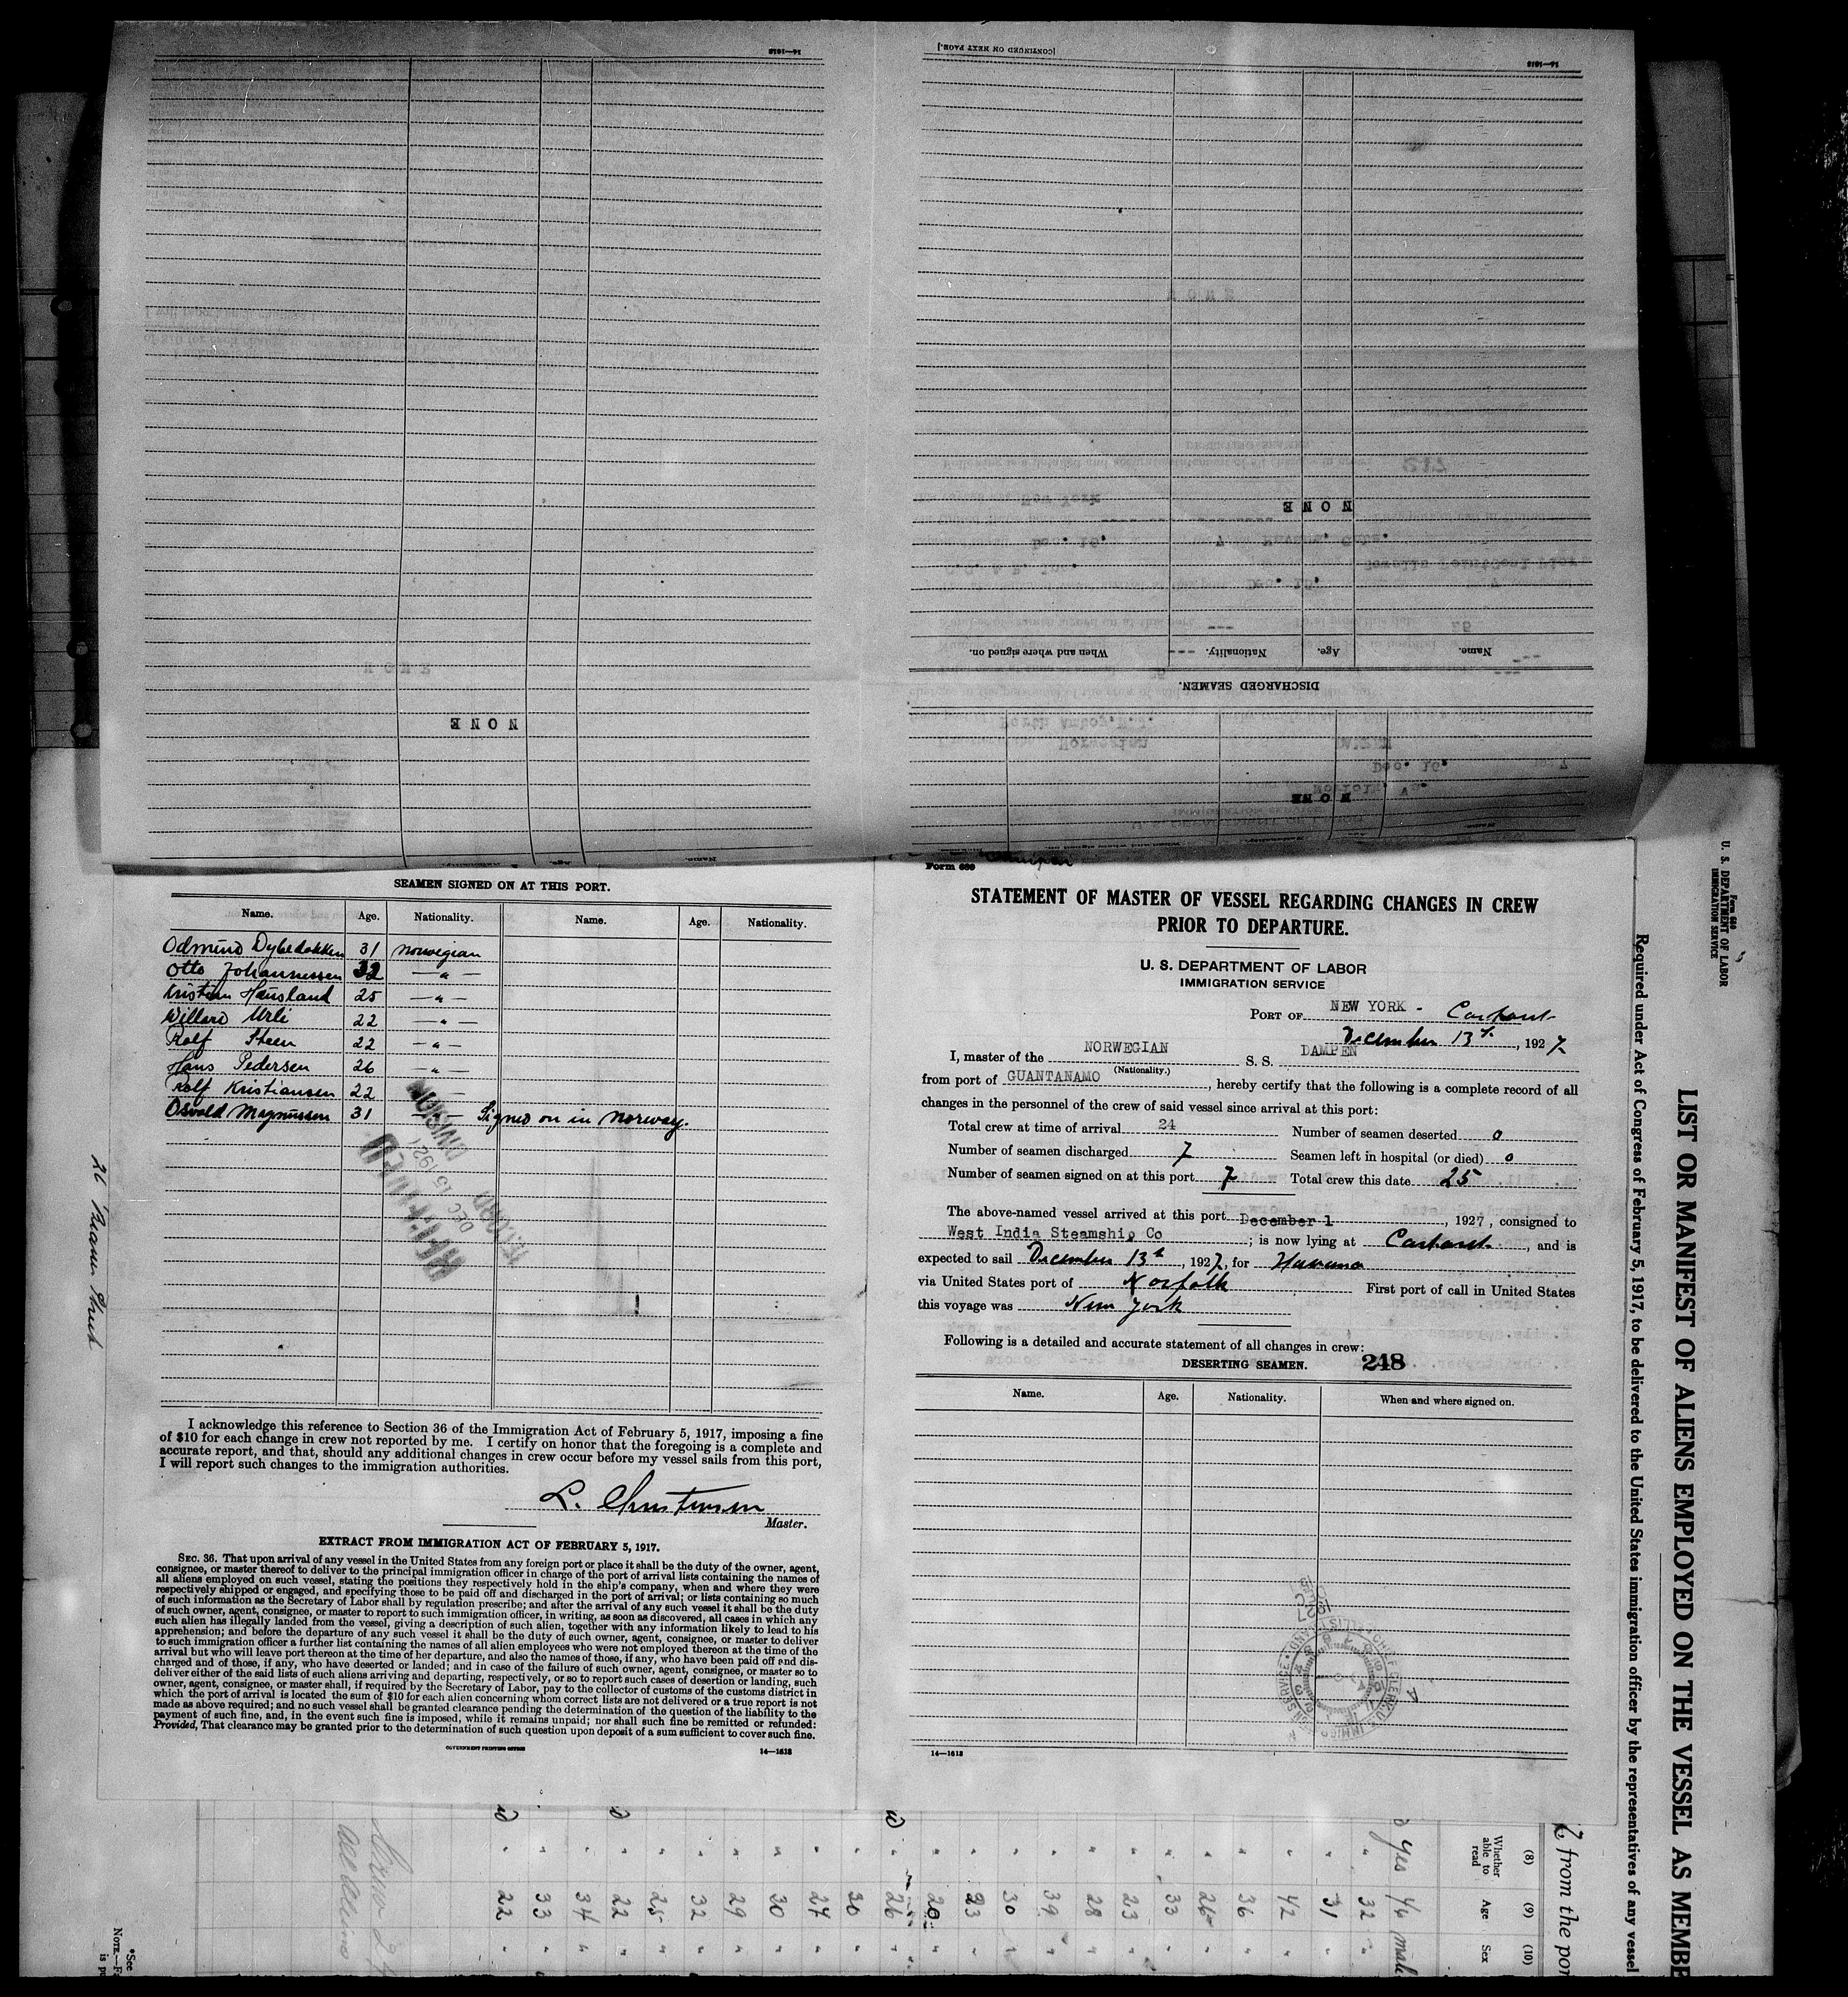 14—1618
[CONTINUED ON NEXT PAGE.]
14—1618
NONE
NONE
Name.
Age.
Nationality.
When and where signed on.
DISCHARGED SEAMEN.
NONE
SEAMEN SIGNED ON AT THIS PORT.
Name. Age. Nationality. Name. Age. Nationality.
Odmund Dybedokken 31 Norwegian
Otto Johannessen 32 — " —
Kristian Hausland 25 — " —
Willard Urli 22 — " —
Rolf Steen 22 — " —
Hans Pedersen 26 — " —
Rolf Kristiansen 22
Osvald Magnussen 31 — " — Signed on in Norway.
DEC 15 192
RECORD
I acknowledge this reference to Section 36 of the Immigration Act of February 5, 1917, imposing a fine
of $10 for each change in crew not reported by me. I certify on honor that the foregoing is a complete and
accurate report, and that, should any additional changes in crew occur before my vessel sails from this port,
I will report such changes to the immigration authorities.
L. Christensen
Master.
EXTRACT FROM IMMIGRATION ACT OF FEBRUARY 5, 1917.
SEC. 36. That upon arrival of any vessel in the United States from any foreign port or place it shall be the duty of the owner, agent,
consignee, or master thereof to deliver to the principal immigration officer in charge of the port of arrival lists containing the names of
all aliens employed on such vessel, stating the positions they respectively hold in the ship's company, when and where they were
respectively shipped or engaged, and specifying those to be paid off and discharged in the port of arrival; or lists containing so much
of such information as the Secretary of Labor shall by regulation prescribe; and after the arrival of any such vessel it shall be the duty
of such owner, agent, consignee, or master to report to such immigration officer, in writing, as soon as discovered, all cases in which any
such alien has illegally landed from the vessel, giving a description of such alien, together with any information likely to lead to his
apprehension; and before the departure of any such vessel it shall be the duty of such owner, agent, consignee, or master to deliver
to such immigration officer a further list containing the names of all alien employees who were not employed thereon at the time of the
arrival but who will leave port thereon at the time of her departure, and also the names of those, if any, who have been paid off and dis-
charged and of those, if any, who have deserted or landed; and in case of the failure of such owner, agent, consignee, or master so to
deliver either of the said lists of such aliens arriving and departing, respectively, or so to report such cases of desertion or landing, such
owner, agent, consignee, or master shall, if required by the Secretary of Labor, pay to the collector of customs of the customs district in
which the port of arrival is located the sum of $10 for each alien concerning whom correct lists are not delivered or a true report is not
made as above required; and no such vessel shall be granted clearance pending the determination of the question of the liability to the
payment of such fine, and, in the event such fine is imposed, while it remains unpaid; nor shall such fine be remitted or refunded:
Provided, That clearance may be granted prior to the determination of such question upon deposit of a sum sufficient to cover such fine.
GOVERNMENT PRINTING OFFICE 14—1618
26 Beaver Street
Form 689
STATEMENT OF MASTER OF VESSEL REGARDING CHANGES IN CREW
PRIOR TO DEPARTURE.
U. S. DEPARTMENT OF LABOR
IMMIGRATION SERVICE
PORT OF NEW YORK - Carteret
December 13th, 1927
I, master of the NORWEGIAN S. S. DAMPEN
(Nationality.)
from port of GUANTANAMO, hereby certify that the following is a complete record of all
changes in the personnel of the crew of said vessel since arrival at this port:
Total crew at time of arrival 24 Number of seamen deserted 0
Number of seamen discharged 7 Seamen left in hospital (or died) 0
Number of seamen signed on at this port 7 Total crew this date 25
The above-named vessel arrived at this port December 1, 1927, consigned to
West India Steamship Co; is now lying at Carteret, and is
expected to sail December 13th, 1927, for Havana
via United States port of Norfolk First port of call in United States
this voyage was New York
Following is a detailed and accurate statement of all changes in crew:
DESERTING SEAMEN. 248
Name. Age. Nationality. When and where signed on.
1927
14—1618
Form 680
U. S. DEPARTMENT OF LABOR
IMMIGRATION SERVICE
LIST OR MANIFEST OF ALIENS EMPLOYED ON THE VESSEL AS MEMBE
Required under Act of Congress of February 5, 1917, to be delivered to the United States immigration officer by the representatives of any vessel
from the por
(8) (9) (10)
Whether able to read Age Sex
yes 46 male
" 32 "
" 31 "
" 42 "
" 36 "
" 26 "
" 33 "
" 23 "
" 28 "
" 39 "
" 30 "
" 23 "
" 20 "
" 26 "
" 30 "
" 27 "
" 30 "
" 29 "
" 32 "
" 25 "
" 22 "
" 34 "
" 33 "
" 22 "
*See
NOTE.—F
is pu